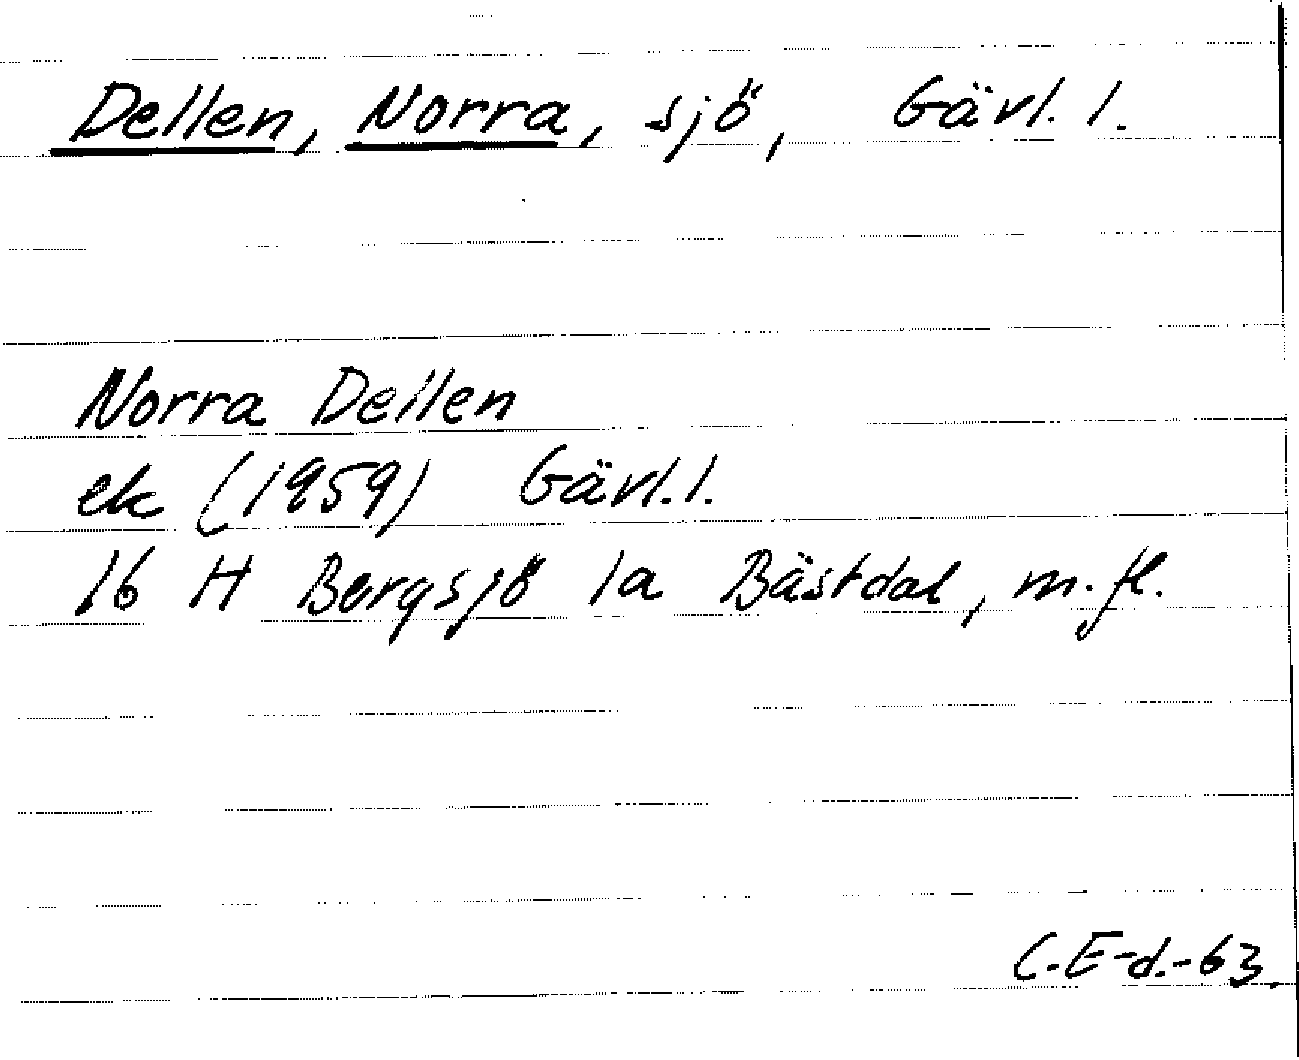 Dellen, Norra, sjö, Gävl. l.
Norra Dellen
ek (1959) Gävl. l.
16 H Bergsjö 1a Bästdal, m.fl.
C.E-d.-63.